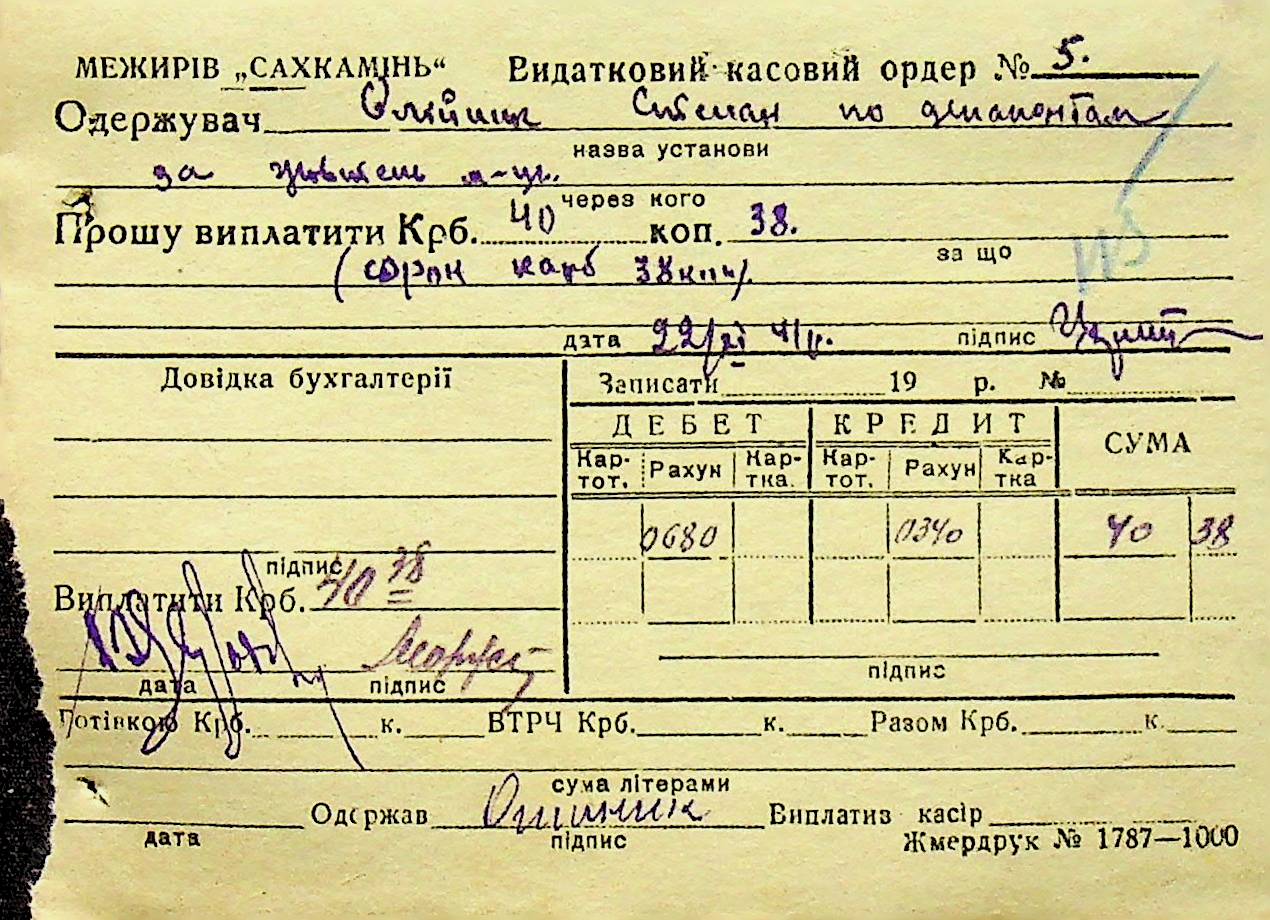 МЕЖИРІВ „САХКАМІНЬ“ Видатковий касовий ордер № 5.
Одержувач Олійник Степан по
назва установи
за м-ць.
через кого
Прошу виплатити Крб. 40 коп. 38.
за що
(сорок карб 38 коп)
дата 22/ 41р. підпис
Довідка бухгалтерії
Записати 19 р. №
ДЕБЕТ КРЕДИТ СУМА
Кар-тот. Рахун Кар-тка. Кар-тот. Рахун Кар-тка
0680 0340 40 38
підпис
Виплатити Крб. 40 38
дата підпис
підпис
Готівкою Крб. к. ВТРЧ Крб. к. Разом Крб. к.
сума літерами
Одержав Олійник Виплатив касір
дата підпис
Жмердрук № 1787—1000